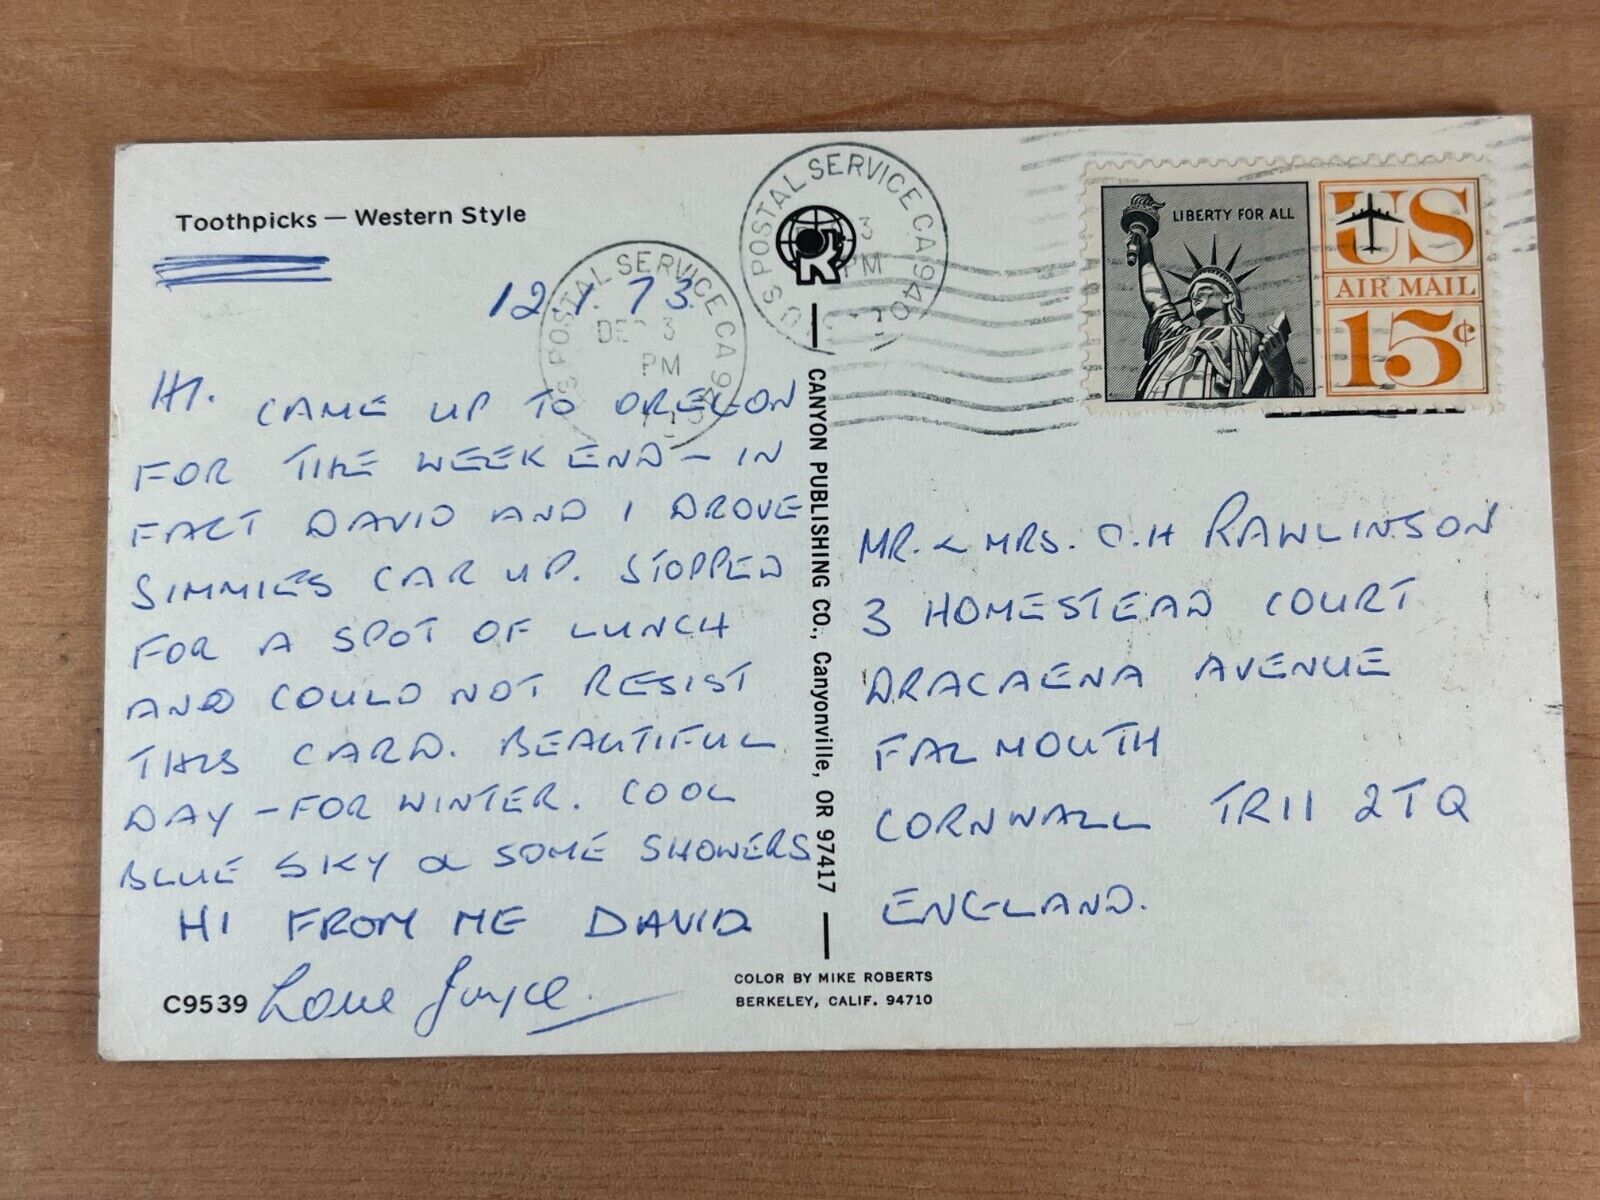 Toothpicks — Western Style
12.1.73.
HI. CAME UP TO OREGON
FOR THE WEEK END — IN
FACT DAVID AND I DROVE
SIMMIES CAR UP. STOPPED
FOR A SPOT OF LUNCH
AND COULD NOT RESIST
THIS CARD. BEAUTIFUL
DAY — FOR WINTER. COOL
BLUE SKY & SOME SHOWERS
HI FROM ME DAVID
Love Joyce.
C9539
US POSTAL SERVICE CA
DEC 3
PM
US POSTAL SERVICE CA 940
3
PM
CANYON PUBLISHING CO., Canyonville, OR 97417
COLOR BY MIKE ROBERTS
BERKELEY, CALIF. 94710
LIBERTY FOR ALL
US
AIR MAIL
15¢
MR. & MRS. C.H RAWLINSON
3 HOMESTEAD COURT
DRACAENA AVENUE
FALMOUTH
CORNWALL TR11 2TQ
ENGLAND.